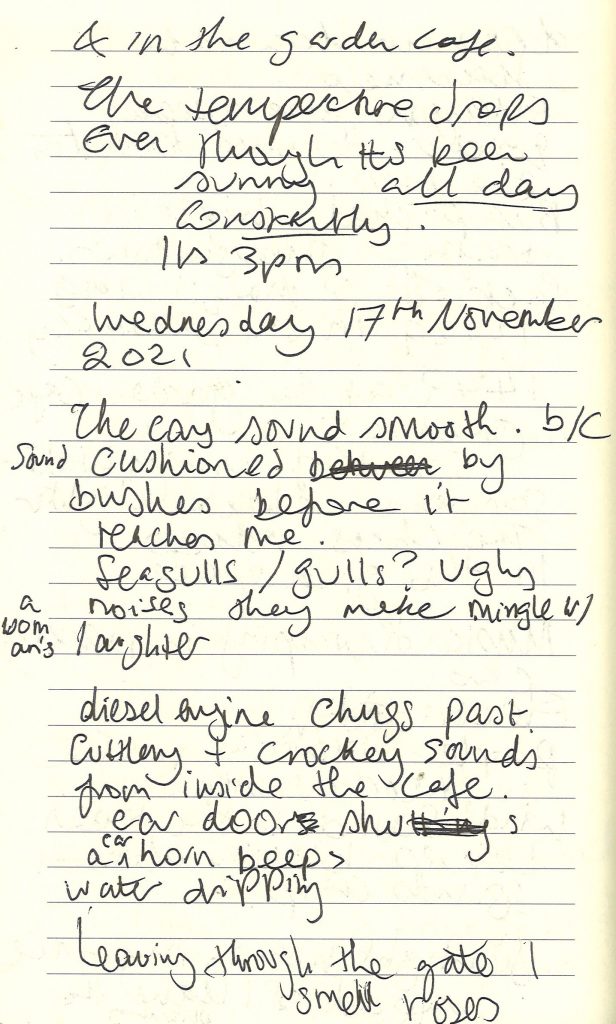 & in the garden cafe.
The temperature drops
Even though its been
sunny all day
Constantly.
Its 3pm
Wednesday 17th November
2021
The cars sound smooth. b/c
Sound cushioned between by
bushes before it
reaches me.
Seagulls / gulls? Ugly
noises they make mingle w/
a womans laughter
diesel engine chugs past.
Cuttlery + crockey sounds
from inside the cafe.
car doors shutting s
a car horn beeps
water dripping
Leaving through the gate I
smell roses